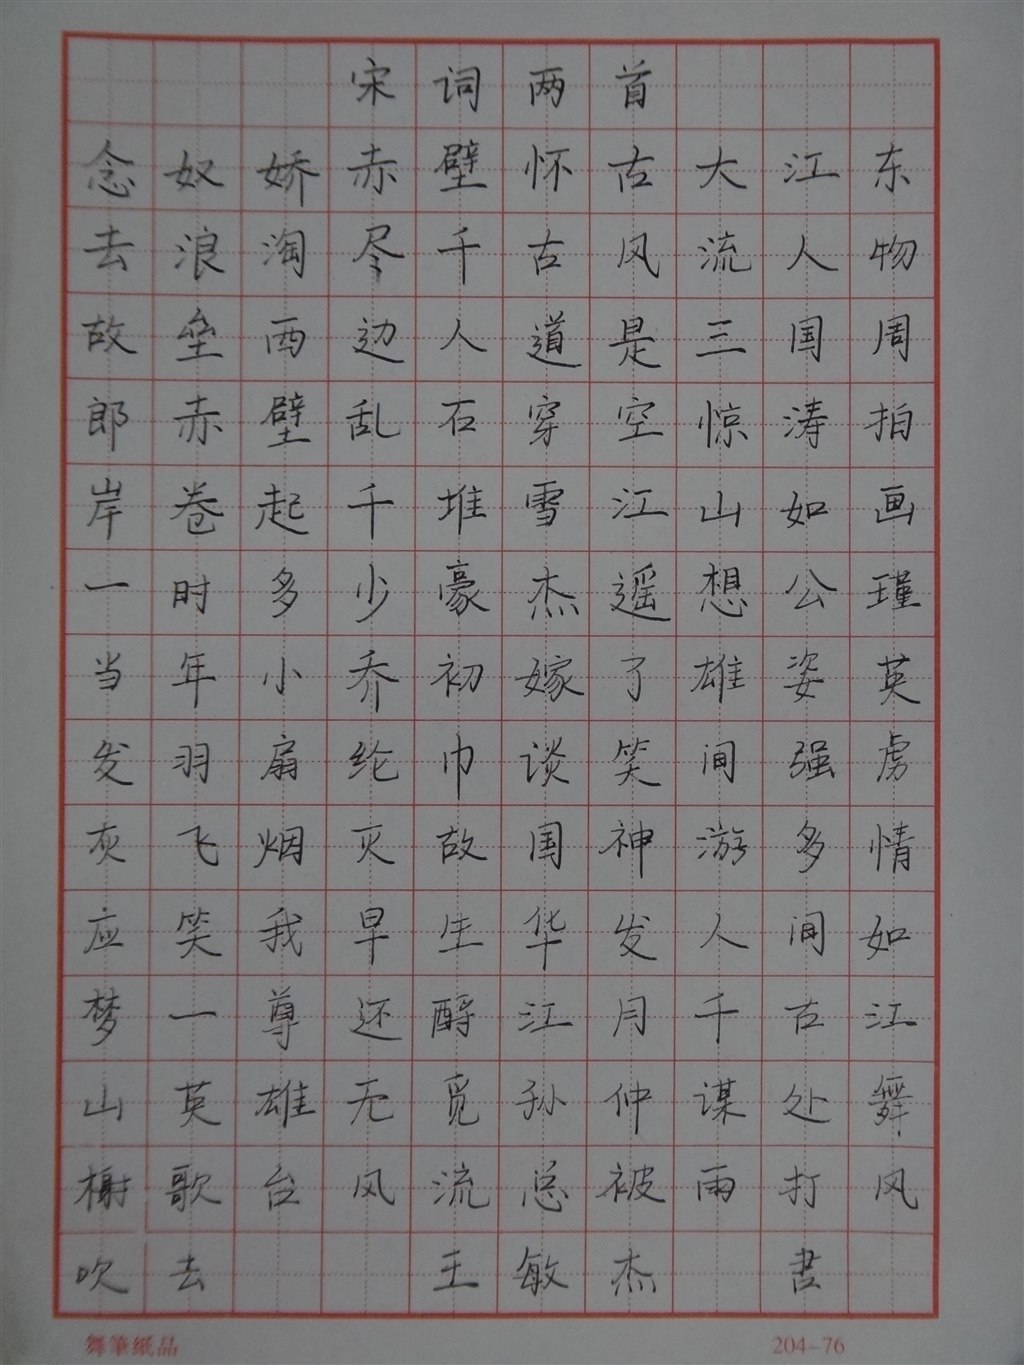 宋词两首
念奴娇赤壁怀古大江东
去浪淘尽千古风流人物
故垒西边人道是三国周
郎赤壁乱石穿空惊涛拍
岸卷起千堆雪江山如画
一时多少豪杰遥想公瑾
当年小乔初嫁了雄姿英
发羽扇纶巾谈笑间强虏
灰飞烟灭故国神游多情
应笑我早生华发人间如
梦一尊还酹江月千古江
山英雄无觅孙仲谋处舞
榭歌台风流总被雨打风
吹去 王敏杰 书
舞筆紙品 204-76